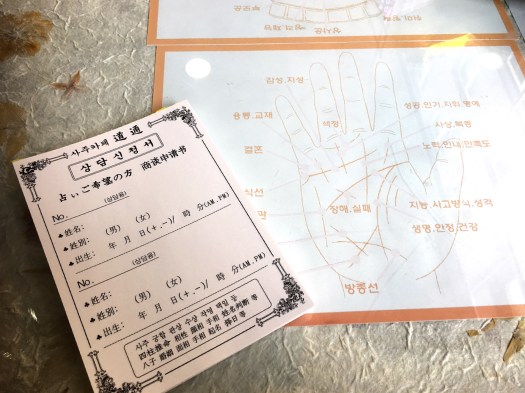 사주카페 遺通
상담신청서
占いご希望の方 商谈申请书
No. (상담용)
♣姓名:
♣姓別: (男) (女)
♣出生: 年 月 日(+.-)/ 時 分(AM.PM)
No. (상담용)
♣姓名:
♣姓別: (男) (女)
♣出生: 年 月 日(+.-)/ 時 分(AM.PM)
사주 궁합 관상 수상 작명 택일 등
四柱推命 相性 顔相 手相 姓名判断 等
八子 婚姻 面相 手相 起名 择日 等
감정,지성
융통,교재
색정
성공,인기,지위,명예
사상,복종
결혼
노력,인내,만족도
식선
장해,실패
지능,사고방식,성격
성명,안정,건강
방종선